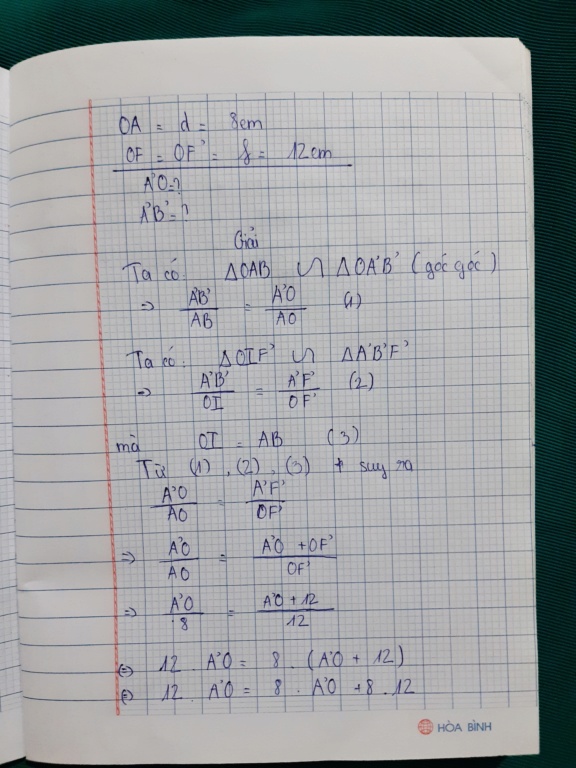 OA = d = 8cm
OF = OF' = f = 12cm
A'O=?
A'B'=?
Giải
Ta có: ΔOAB ∽ ΔOA'B' (góc góc)
=> A'B'/AB = A'O/AO (1)
Ta có: ΔOIF' ∽ ΔA'B'F'
=> A'B'/OI = A'F'/OF' (2)
mà OI = AB (3)
Từ (1), (2), (3) suy ra
A'O/AO = A'F'/OF'
=> A'O/AO = A'O + OF'/OF'
=> A'O/8 = A'O + 12/12
(=) 12 . A'O = 8 . (A'O + 12)
(=) 12 . A'O = 8 . A'O + 8 . 12
HÒA BÌNH